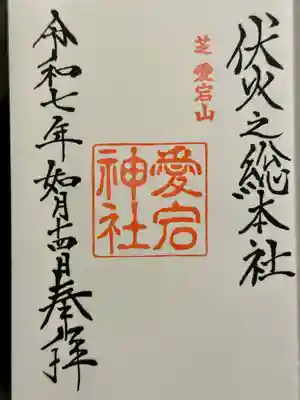 伏火之総本社
芝 愛宕山
愛宕神社
令和七年如月十四日奉拝